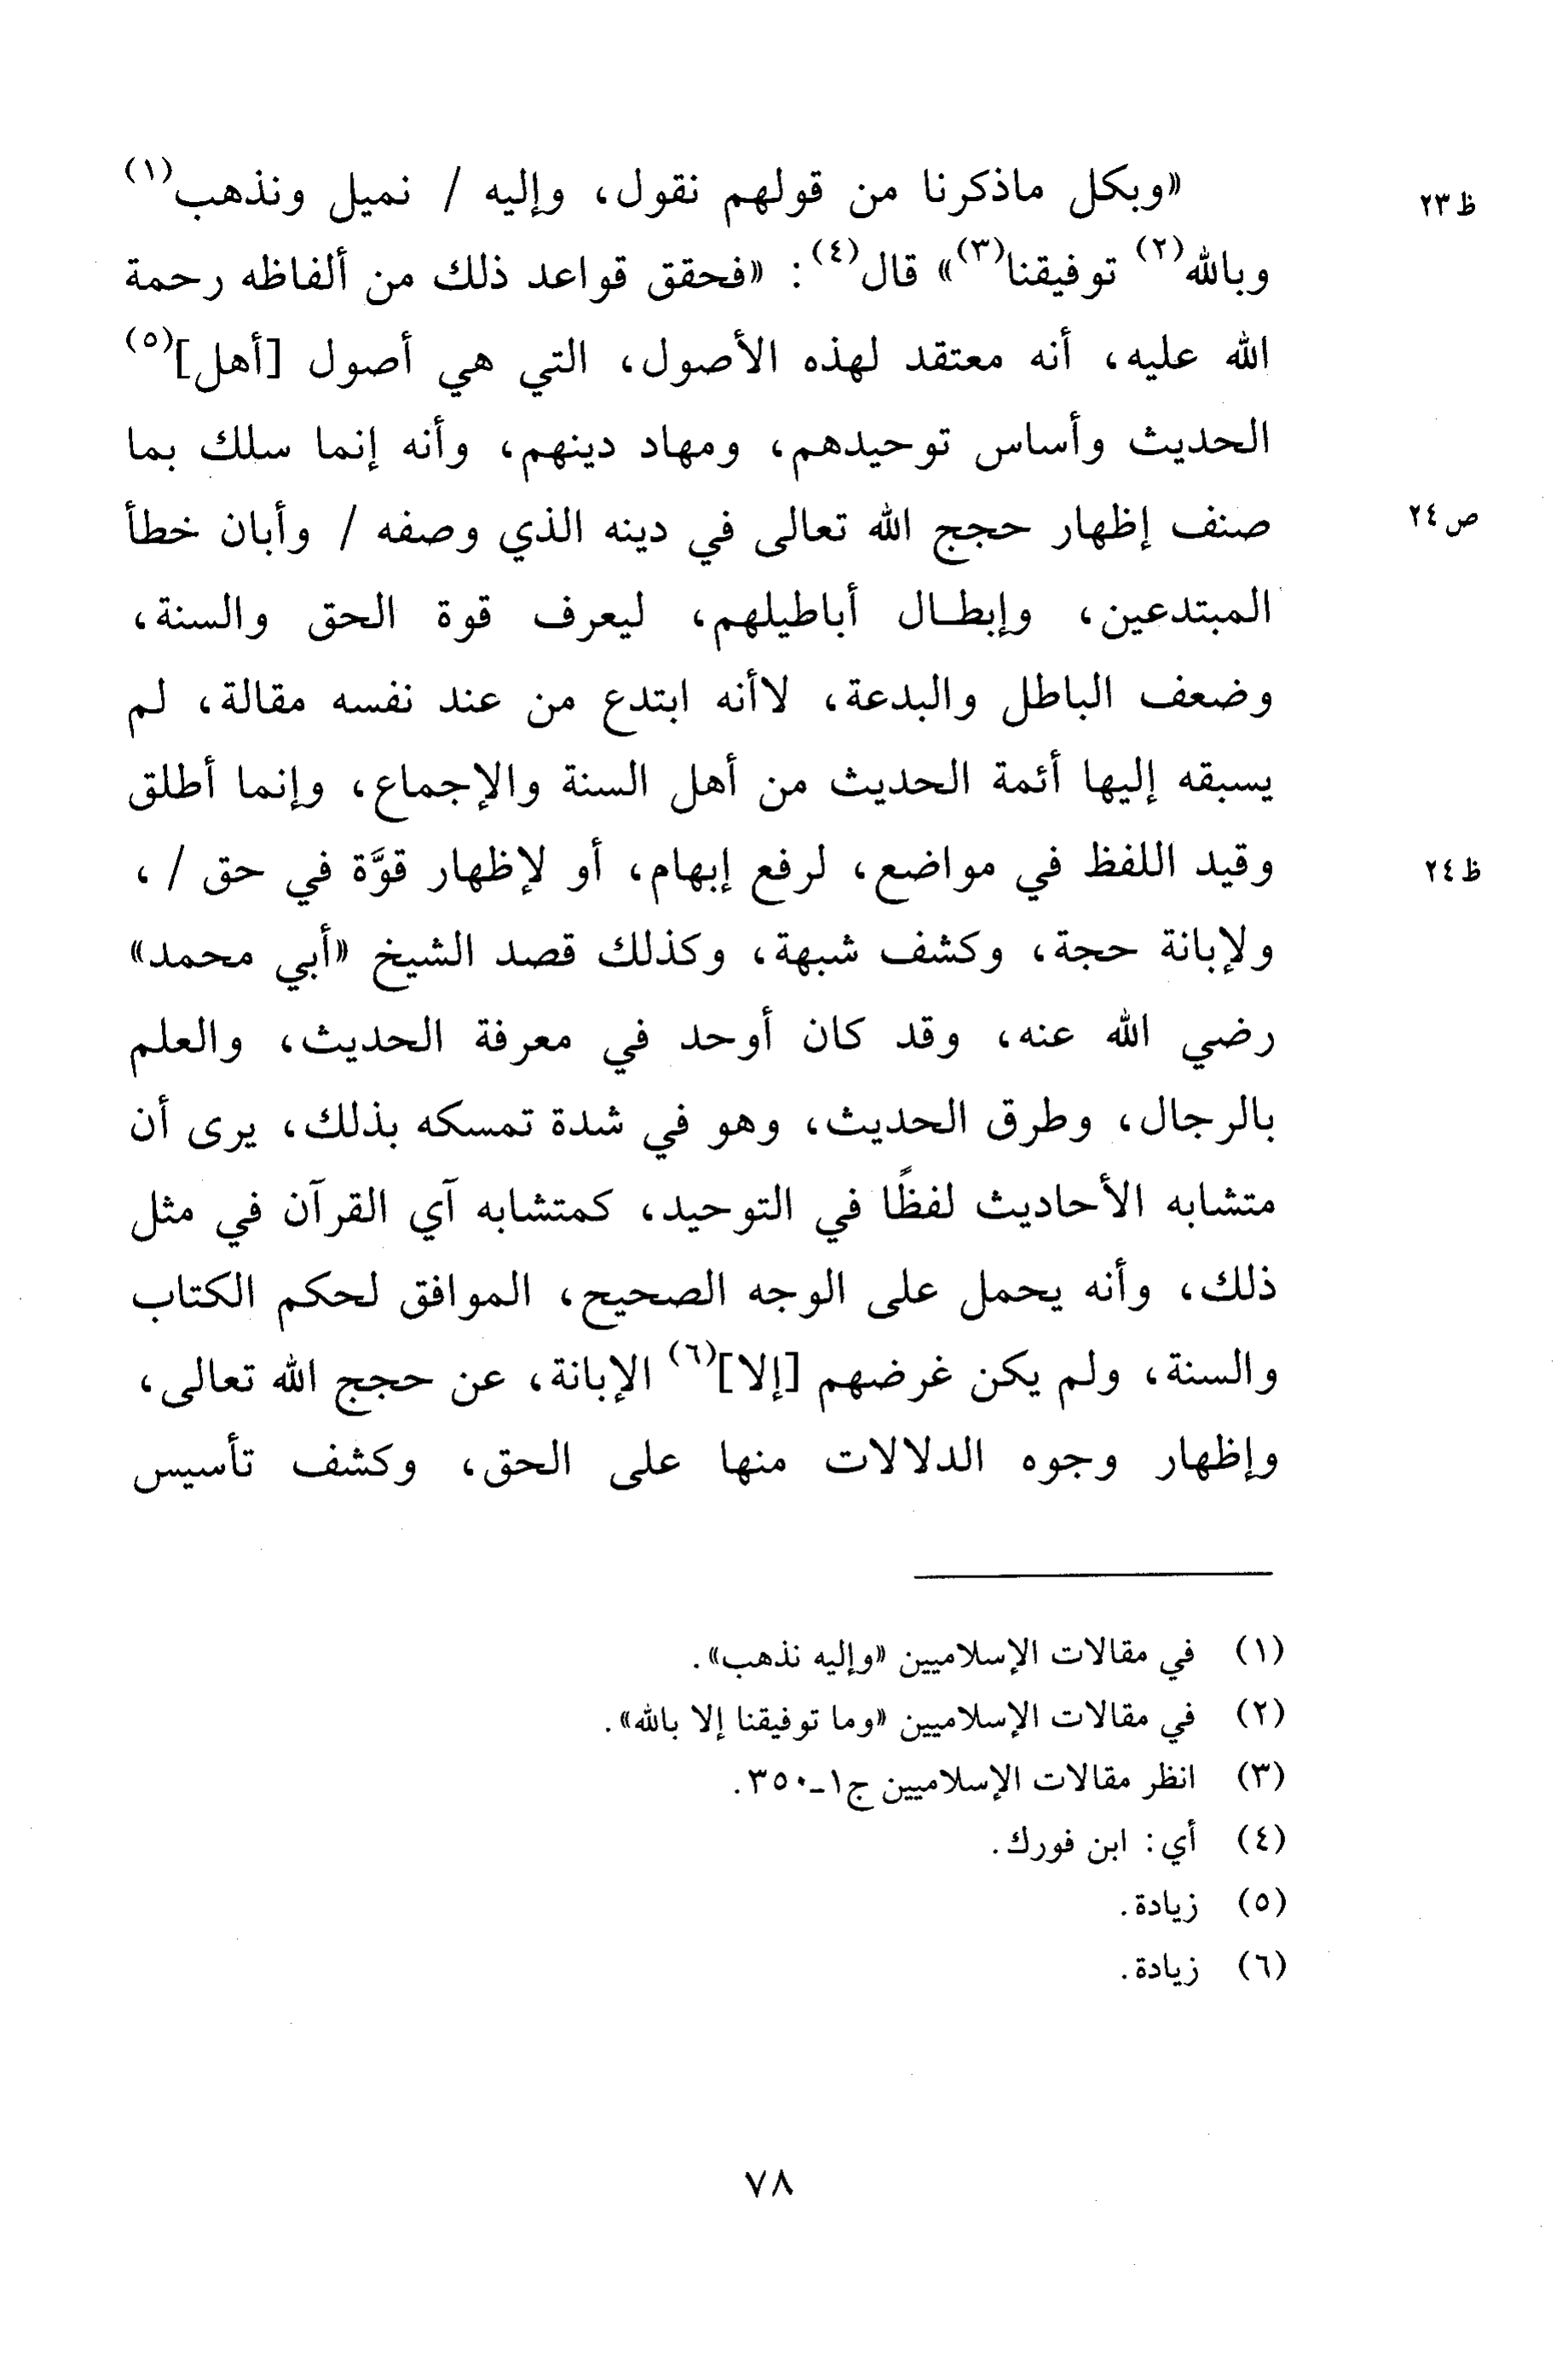 «وبكل ماذكرنا من قولهم نقول، وإليه / نميل ونذهب(١)
ظ٢٣
وبالله(٢) توفيقنا(٣)» قال(٤): «فحقق قواعد ذلك من ألفاظه رحمة
الله عليه، أنه معتقد لهذه الأصول، التي هي أصول [أهل](٥)
الحديث وأساس توحيدهم، ومهاد دينهم، وأنه إنما سلك بما
صنف إظهار حجج الله تعالى في دينه الذي وصفه / وأبان خطأ
ص٢٤
المبتدعين، وإبطـال أباطيلهم، ليعرف قوة الحق والسنة،
وضعف الباطل والبدعة، لاأنه ابتدع من عند نفسه مقالة، لم
يسبقه إليها أئمة الحديث من أهل السنة والإجماع، وإنما أطلق
وقيد اللفظ في مواضع، لرفع إبهام، أو لإظهار قوَّة في حق / ،
ظ٢٤
ولإبانة حجة، وكشف شبهة، وكذلك قصد الشيخ «أبي محمد»
رضي الله عنه، وقد كان أوحد في معرفة الحديث، والعلم
بالرجال، وطرق الحديث، وهو في شدة تمسكه بذلك، يرى أن
متشابه الأحاديث لفظًا في التوحيد، كمتشابه آي القرآن في مثل
ذلك، وأنه يحمل على الوجه الصحيح، الموافق لحكم الكتاب
والسنة، ولم يكن غرضهم [إلا](٦) الإبانة، عن حجج الله تعالى،
وإظهار وجوه الدلالات منها على الحق، وكشف تأسيس
(١) في مقالات الإسلاميين «وإليه نذهب».
(٢) في مقالات الإسلاميين «وما توفيقنا إلا بالله».
(٣) انظر مقالات الإسلاميين ج١-٣٥٠.
(٤) أي: ابن فورك.
(٥) زيادة.
(٦) زيادة.
٧٨